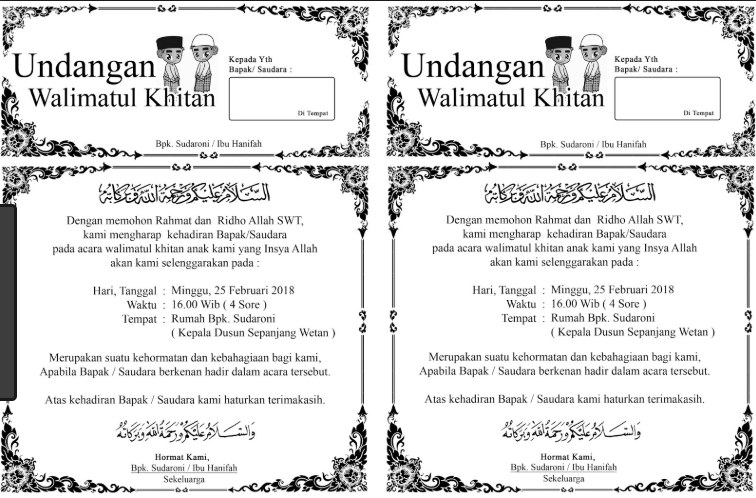 Undangan
Walimatul Khitan
Kepada Yth
Bapak/ Saudara :
Di Tempat
Bpk. Sudaroni / Ibu Hanifah
السَّلَامُ عَلَيْكُمْ وَرَحْمَةُ اللهِ وَبَرَكَاتُهُ
Dengan memohon Rahmat dan Ridho Allah SWT,
kami mengharap kehadiran Bapak/Saudara
pada acara walimatul khitan anak kami yang Insya Allah
akan kami selenggarakan pada :
Hari, Tanggal : Minggu, 25 Februari 2018
Waktu : 16.00 Wib ( 4 Sore )
Tempat : Rumah Bpk. Sudaroni
( Kepala Dusun Sepanjang Wetan )
Merupakan suatu kehormatan dan kebahagiaan bagi kami,
Apabila Bapak / Saudara berkenan hadir dalam acara tersebut.
Atas kehadiran Bapak / Saudara kami haturkan terimakasih.
وَالسَّلَامُ عَلَيْكُمْ وَرَحْمَةُ اللهِ وَبَرَكَاتُهُ
Hormat Kami,
Bpk. Sudaroni / Ibu Hanifah
Sekeluarga
Undangan
Walimatul Khitan
Kepada Yth
Bapak/ Saudara :
Di Tempat
Bpk. Sudaroni / Ibu Hanifah
السَّلَامُ عَلَيْكُمْ وَرَحْمَةُ اللهِ وَبَرَكَاتُهُ
Dengan memohon Rahmat dan Ridho Allah SWT,
kami mengharap kehadiran Bapak/Saudara
pada acara walimatul khitan anak kami yang Insya Allah
akan kami selenggarakan pada :
Hari, Tanggal : Minggu, 25 Februari 2018
Waktu : 16.00 Wib ( 4 Sore )
Tempat : Rumah Bpk. Sudaroni
( Kepala Dusun Sepanjang Wetan )
Merupakan suatu kehormatan dan kebahagiaan bagi kami,
Apabila Bapak / Saudara berkenan hadir dalam acara tersebut.
Atas kehadiran Bapak / Saudara kami haturkan terimakasih.
وَالسَّلَامُ عَلَيْكُمْ وَرَحْمَةُ اللهِ وَبَرَكَاتُهُ
Hormat Kami,
Bpk. Sudaroni / Ibu Hanifah
Sekeluarga